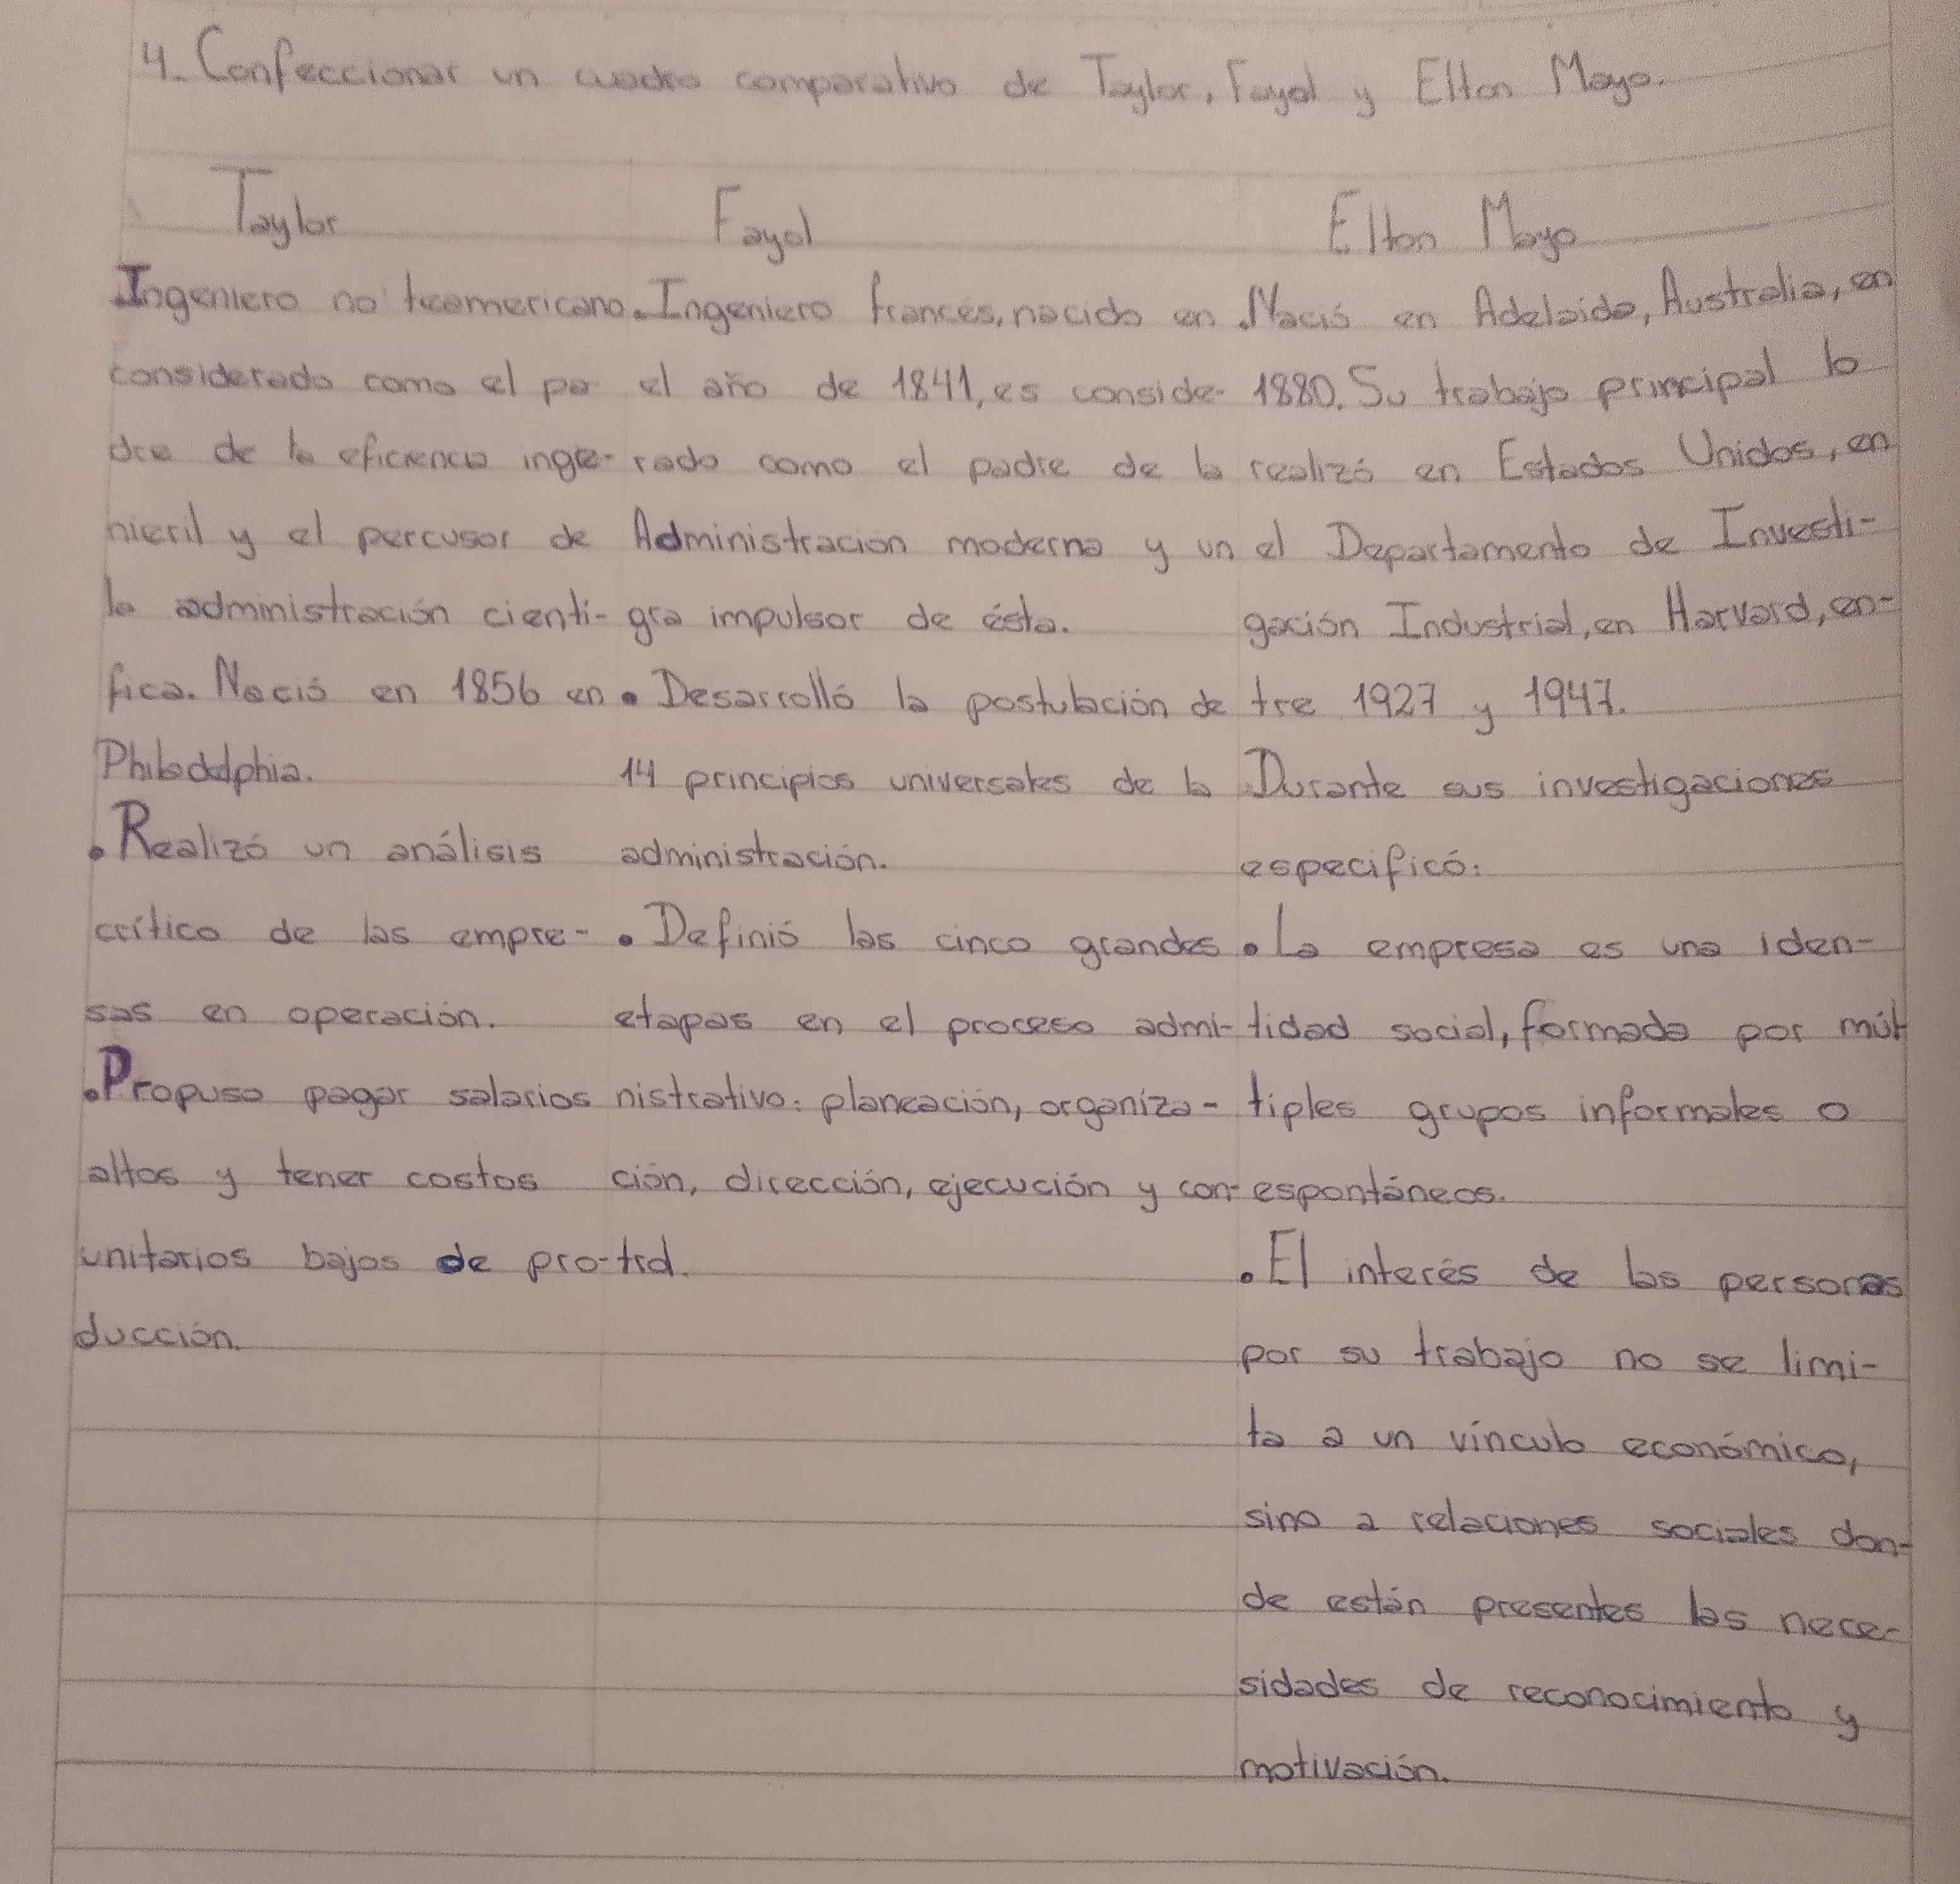 4. Confeccionar un cuadro comparativo de Taylor, Fayol y Elton Mayo.
Taylor
Ingeniero no teamericano.
considerado como el pa
dre de la eficiencia inge-
nieril y el percusor de
la administración cientí-
fica. Nació en 1856 en
Philadelphia.
• Realizó un análisis
crítico de las empre-
sas en operación.
• Propuso pagar salarios
altos y tener costos
unitarios bajos de pro-
ducción.
Fayol
• Ingeniero francés, nacido en
el año de 1841, es conside-
rado como el padre de la
Administración moderna y un
gra impulsor de ésta.
• Desarrolló la postulación de
14 principios universales de la
administración.
• Definió las cinco grandes
etapas en el proceso admi-
nistrativo: planeación, organiza-
ción, dirección, ejecución y con-
trol.
Elton Mayo
• Nació en Adelaida, Australia, en
1880. Su trabajo principal lo
realizó en Estados Unidos, en
el Departamento de Investi-
gación Industrial, en Harvard, en-
tre 1927 y 1947.
Durante sus investigaciones
especificó:
• La empresa es una iden-
tidad social, formada por múl
tiples grupos informales o
espontáneos.
• El interés de las personas
por su trabajo no se limi-
ta a un vínculo económico,
sino a relaciones sociales don-
de están presentes las nece-
sidades de reconocimiento y
motivación.